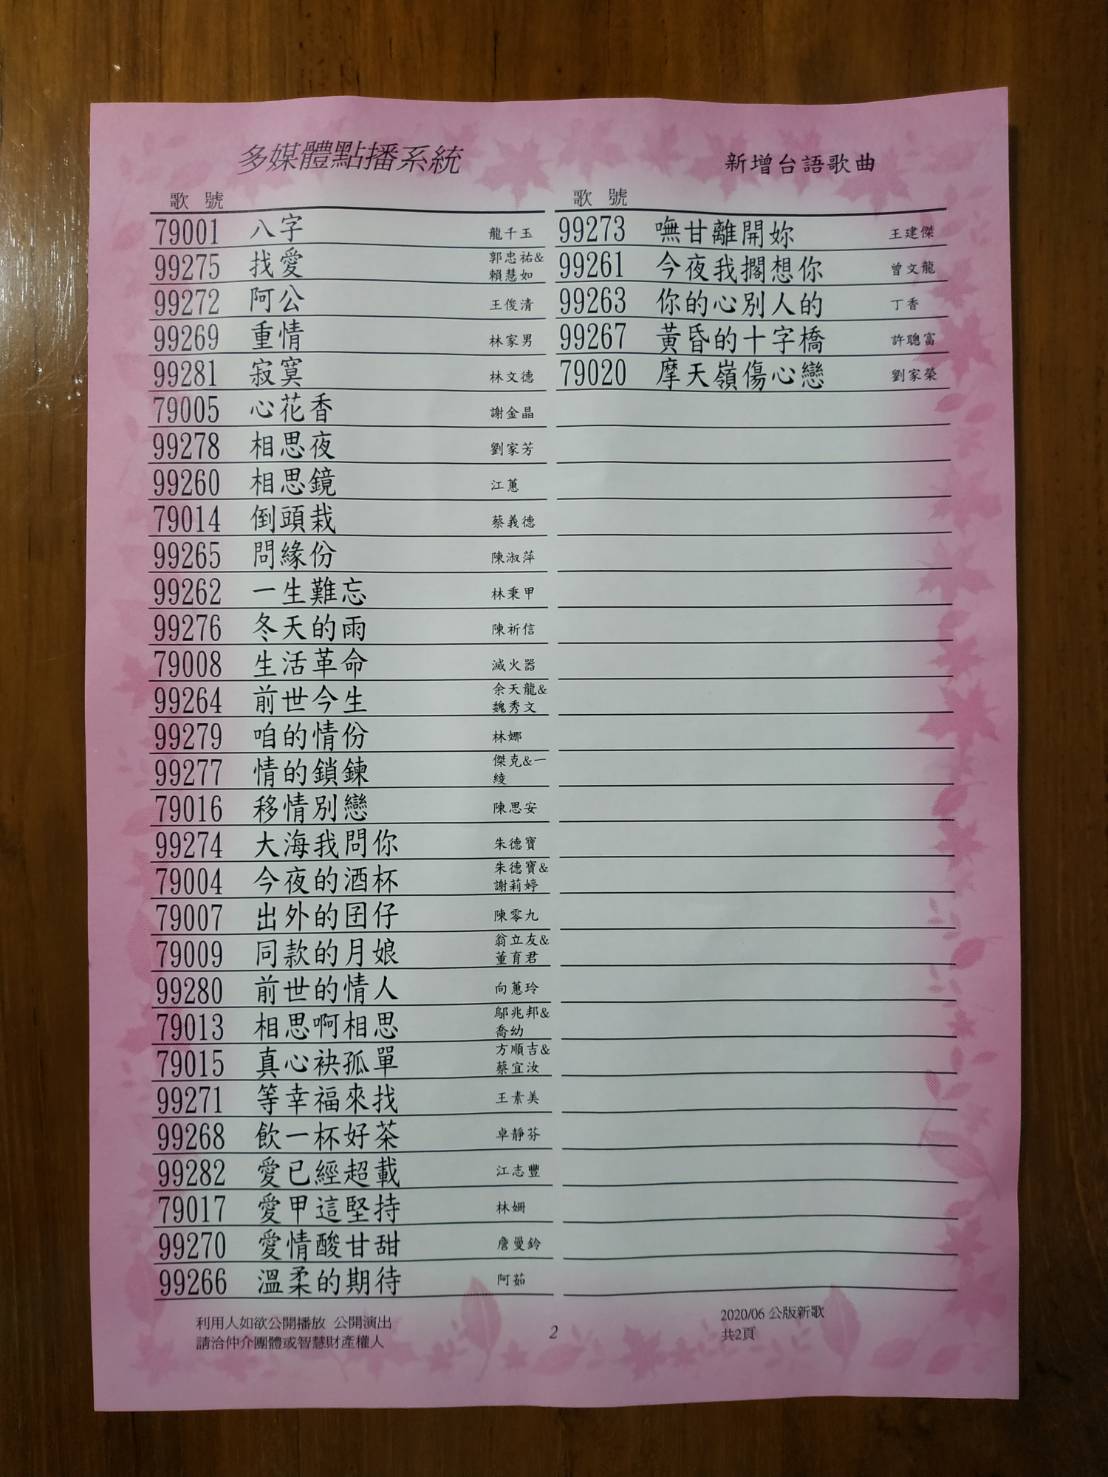 多媒體點播系統
新增台語歌曲
歌 號
79001 八字 龍千玉
99275 找愛 郭忠祐&賴慧如
99272 阿公 王俊清
99269 重情 林家男
99281 寂寞 林文德
79005 心花香 謝金晶
99278 相思夜 劉家芳
99260 相思鏡 江蕙
79014 倒頭栽 蔡義德
99265 問緣份 陳淑萍
99262 一生難忘 林秉甲
99276 冬天的雨 陳祈信
79008 生活革命 滅火器
99264 前世今生 余天龍&魏秀文
99279 咱的情份 林娜
99277 情的鎖鍊 傑克&一綾
79016 移情別戀 陳思安
99274 大海我問你 朱德寶
79004 今夜的酒杯 朱德寶&謝莉婷
79007 出外的囝仔 陳零九
79009 同款的月娘 翁立友&董育君
99280 前世的情人 向蕙玲
79013 相思啊相思 鄔兆邦&喬幼
79015 真心袂孤單 方順吉&蔡宜汝
99271 等幸福來找 王素美
99268 飲一杯好茶 卓靜芬
99282 愛已經超載 江志豐
79017 愛甲這堅持 林姍
99270 愛情酸甘甜 詹曼鈴
99266 溫柔的期待 阿茹
歌 號
99273 嘸甘離開妳 王建傑
99261 今夜我擱想你 曾文龍
99263 你的心別人的 丁香
99267 黃昏的十字橋 許聰富
79020 摩天嶺傷心戀 劉家榮
利用人如欲公開播放 公開演出
請洽仲介團體或智慧財產權人
2
2020/06 公版新歌
共2頁